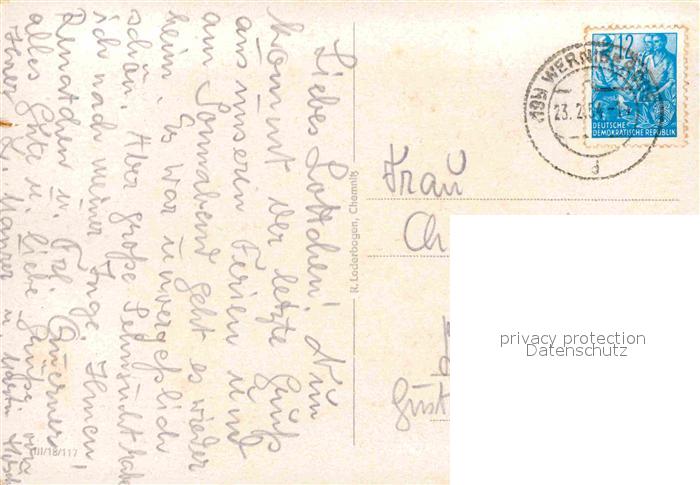 Liebes Lottchen! Nun
kommt der letzte Gruß
aus unseren Ferien und
am Sonnabend geht es wieder
heim. Es war unvergeßlich
schön. Aber große Sehnsucht habe
ich nach meiner Inge. Ihnen,
Renatchen u. Frl.
alles Gute u. liebe Grüße von
Ihrer L. u.
R. Lederbogen, Chemnitz
III/18/117
12
DEUTSCHE
DEMOKRATISCHE REPUBLIK
23. 2.
d
Frau
Ch
Gust
privacy protection
Datenschutz